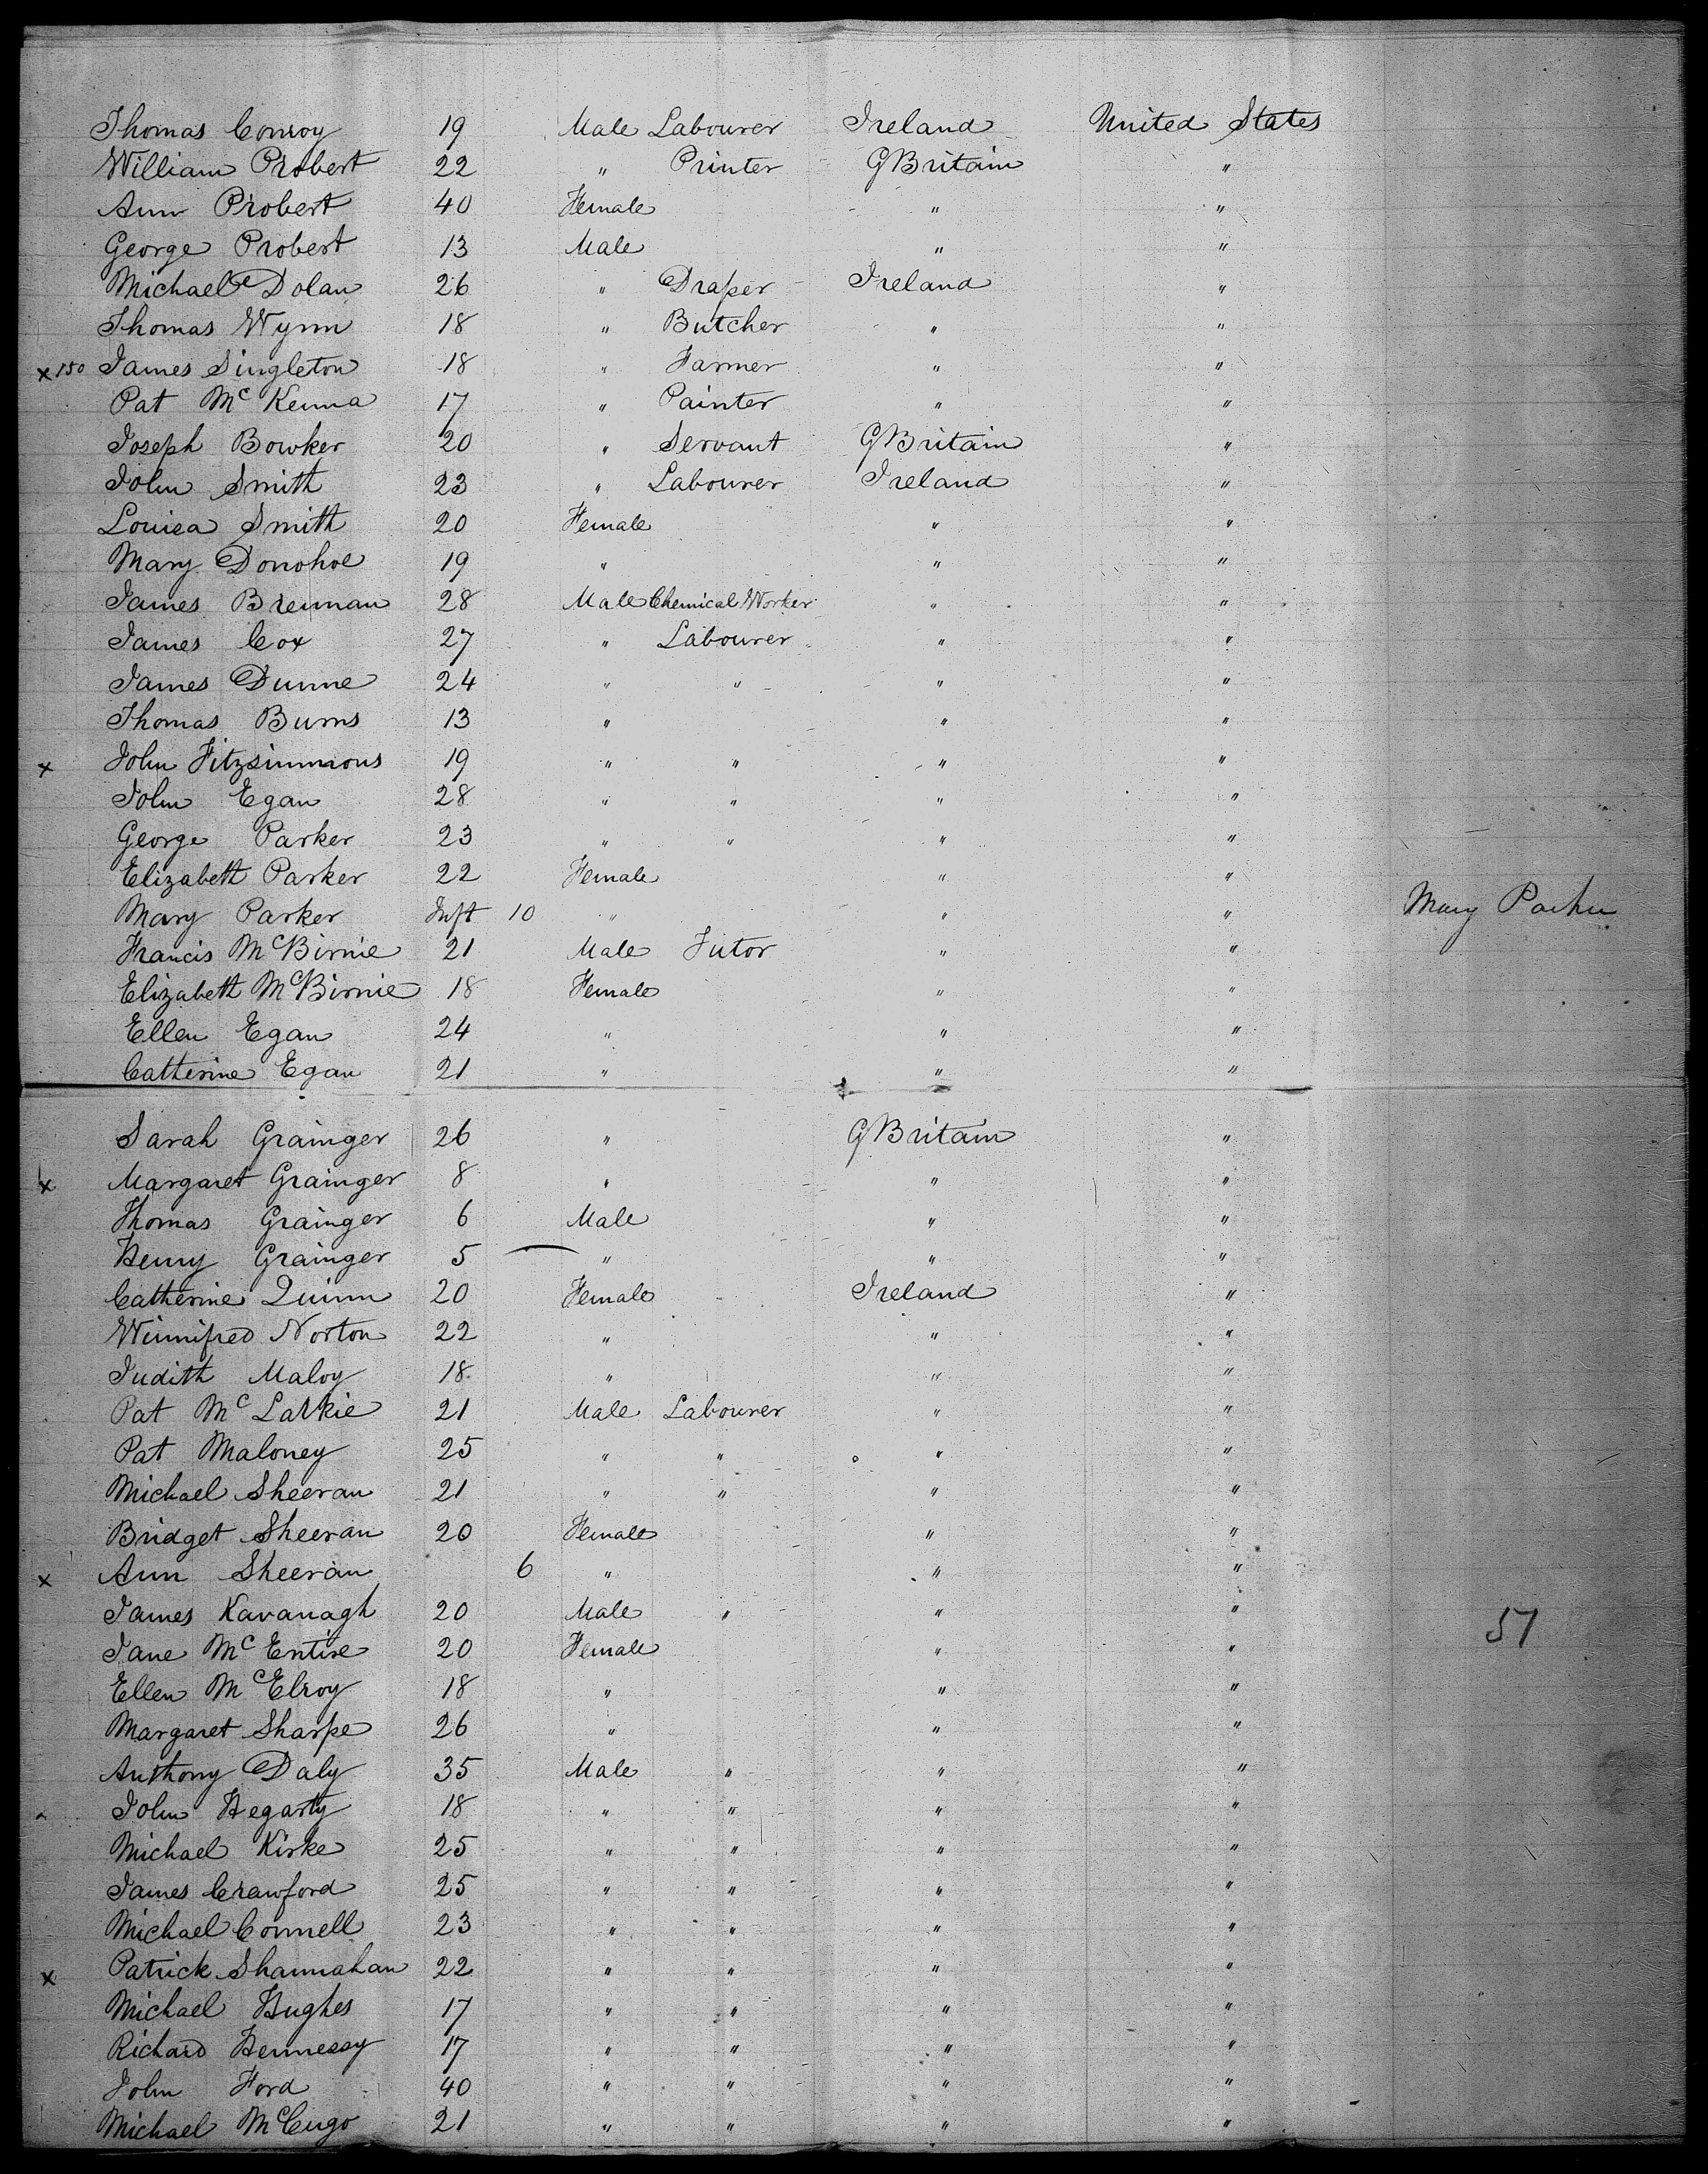 Thomas Conroy 19 Male Labourer Ireland United States
William Probert 22 " Printer GBritain "
Ann Probert 40 Female " "
George Probert 13 Male " "
Michael Dolan 26 " Draper Ireland "
Thomas Wynn 18 " Butcher " "
x150 James Singleton 18 " Farmer " "
Pat McKenna 17 " Painter " "
Joseph Bowker 20 " Servant GBritain "
John Smith 23 " Labourer Ireland "
Louisa Smith 20 Female " "
Mary Donohoe 19 " " "
James Brennan 28 Male Chemical Worker " "
James Cox 27 " Labourer " "
James Dunne 24 " " " "
Thomas Burns 13 " " "
x John Fitzsimmons 19 " " " "
John Egan 28 " " " "
George Parker 23 " " " "
Elizabeth Parker 22 Female " "
Mary Parker Inft 10 " " " Mary Parker
Francis McBirnie 21 Male Tutor " "
Elizabeth McBirnie 18 Female " "
Ellen Egan 24 " " "
Catherine Egan 21 " " "
Sarah Grainger 26 " GBritain "
x Margaret Grainger 8 " " "
Thomas Grainger 6 Male " "
Henry Grainger 5 " " "
Catherine Quinn 20 Female Ireland "
Winnifred Norton 22 " " "
Judith Maloy 18 " " "
Pat Mc 21 Male Labourer " "
Pat Maloney 25 " " " "
Michael Sheeran 21 " " " "
Bridget Sheeran 20 Female " "
x Ann Sheeran 6 " " "
James Kavanagh 20 Male " " "
Jane McEntire 20 Female " " 57
Ellen McElroy 18 " " "
Margaret Sharpe 26 " " "
Anthony Daly 35 Male " " "
John Hegarty 18 " " " "
Michael Kirke 25 " " " "
James Crawford 25 " " " "
Michael Connell 23 " " " "
x Patrick Shannahan 22 " " " "
Michael Hughes 17 " " " "
Richard Hennessy 17 " " " "
John Ford 40 " " " "
Michael McCugo 21 " " " "